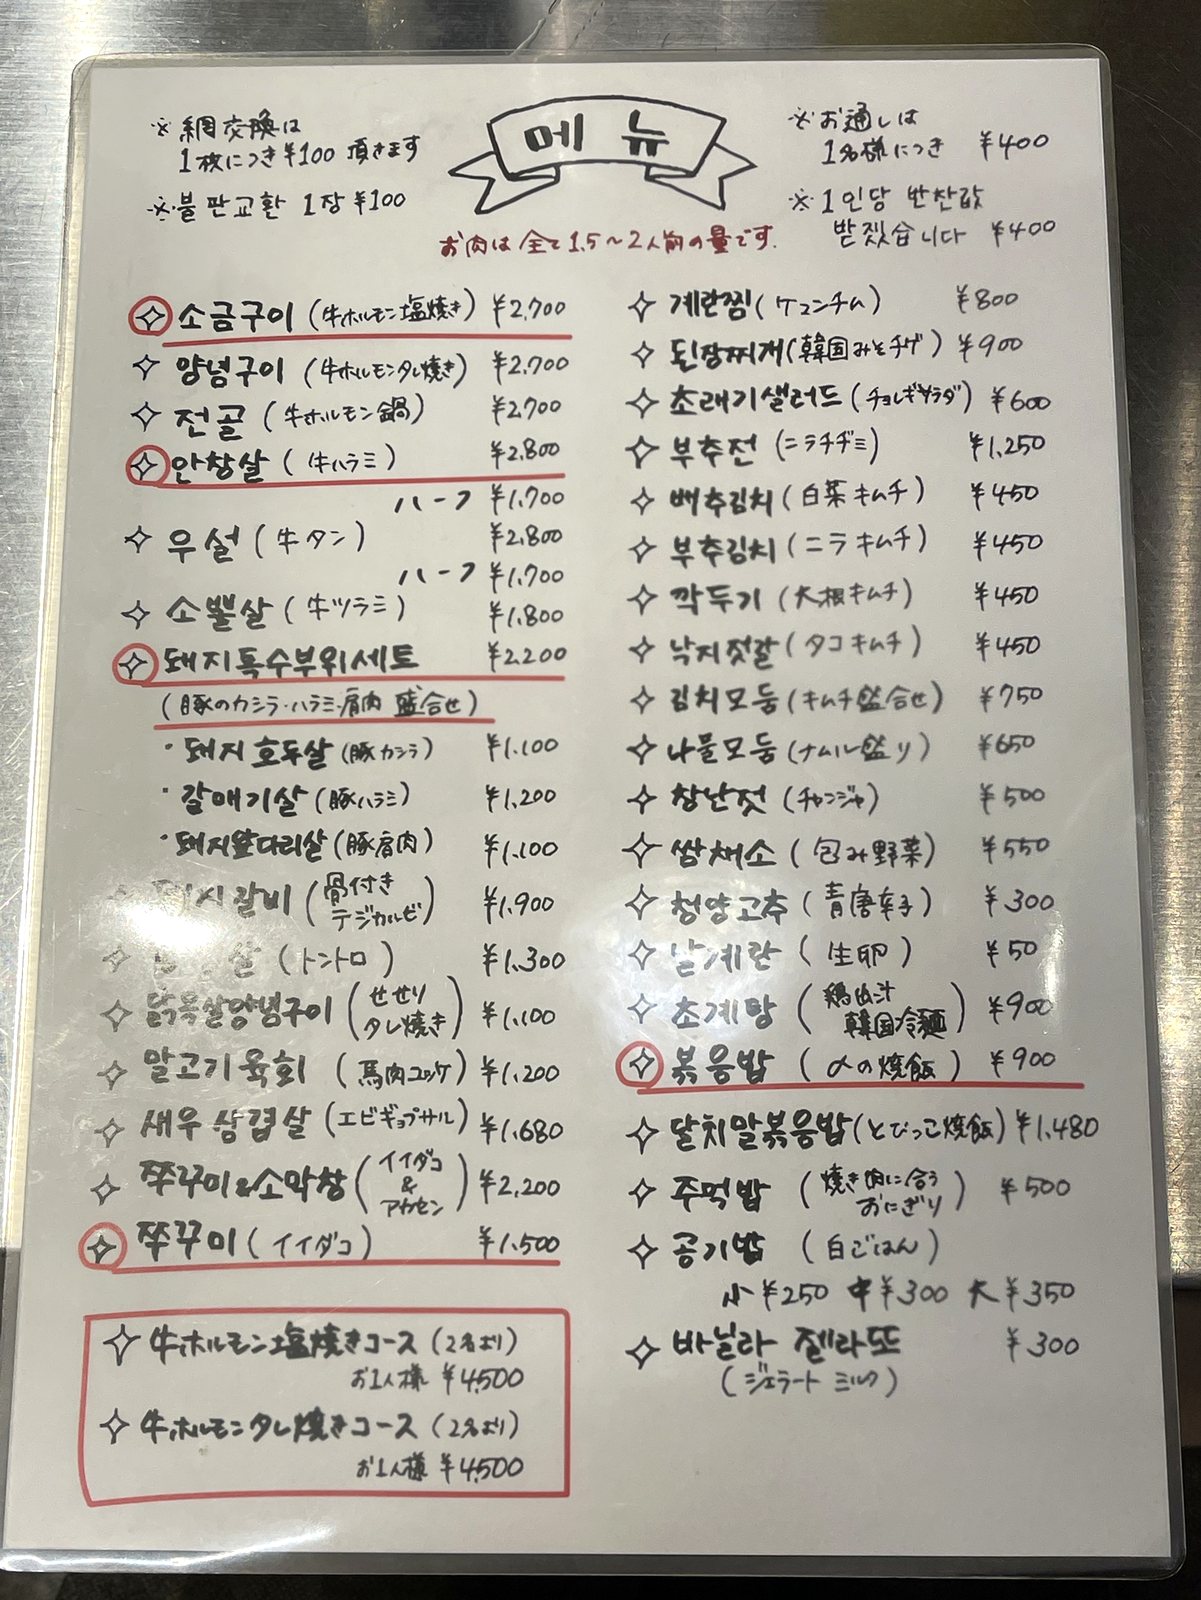 ※網交換は
1枚につき¥100 頂きます
※불판교환 1장 ¥100
메뉴
※お通しは
1名様につき ¥400
※1인당 반찬값
받겠습니다 ¥400
お肉は全て1.5〜2人前の量です.
소금구이 (牛ホルモン塩焼き) ¥2,700
양념구이 (牛ホルモンタレ焼き) ¥2,700
전골 (牛ホルモン鍋) ¥2,700
안창살 (牛ハラミ) ¥2,800
ハーフ ¥1,700
우설 (牛タン) ¥2,800
ハーフ ¥1,700
소뽈살 (牛ツラミ) ¥1,800
돼지특수부위세트 ¥2,200
(豚のカシラ・ハラミ・肩肉 盛合せ)
・돼지호두살 (豚カシラ) ¥1,100
・갈매기살 (豚ハラミ) ¥1,200
・돼지앞다리살 (豚肩肉) ¥1,100
갈비 (骨付きテジカルビ) ¥1,900
살 (トントロ) ¥1,300
닭목살양념구이 (せせりタレ焼き) ¥1,100
말고기육회 (馬肉ユッケ) ¥1,200
새우삼겹살 (エビギョプサル) ¥1,680
쭈꾸미&소막창 (イイダコ&アカセン) ¥2,200
쭈꾸미 (イイダコ) ¥1,500
牛ホルモン塩焼きコース (2名より)
お1人様 ¥4,500
牛ホルモンタレ焼きコース (2名より)
お1人様 ¥4,500
계란찜 (ケランチム) ¥800
된장찌개 (韓国みそチゲ) ¥900
초래기샐러드 (チョレギサラダ) ¥600
부추전 (ニラチヂミ) ¥1,250
배추김치 (白菜キムチ) ¥450
부추김치 (ニラキムチ) ¥450
깍두기 (大根キムチ) ¥450
낙지젓갈 (タコキムチ) ¥450
김치모둠 (キムチ盛合せ) ¥750
나물모둠 (ナムル盛り) ¥650
창난젓 (チャンジャ) ¥500
쌈채소 (包み野菜) ¥550
청양고추 (青唐辛子) ¥300
날계란 (生卵) ¥50
초계탕 (鶏出汁韓国冷麺) ¥900
볶음밥 (〆の焼飯) ¥900
날치알볶음밥 (とびっこ焼飯) ¥1,480
주먹밥 (焼き肉に合うおにぎり) ¥500
공기밥 (白ごはん)
小¥250 中¥300 大¥350
바닐라 젤라또 ¥300
(ジェラート ミルク)